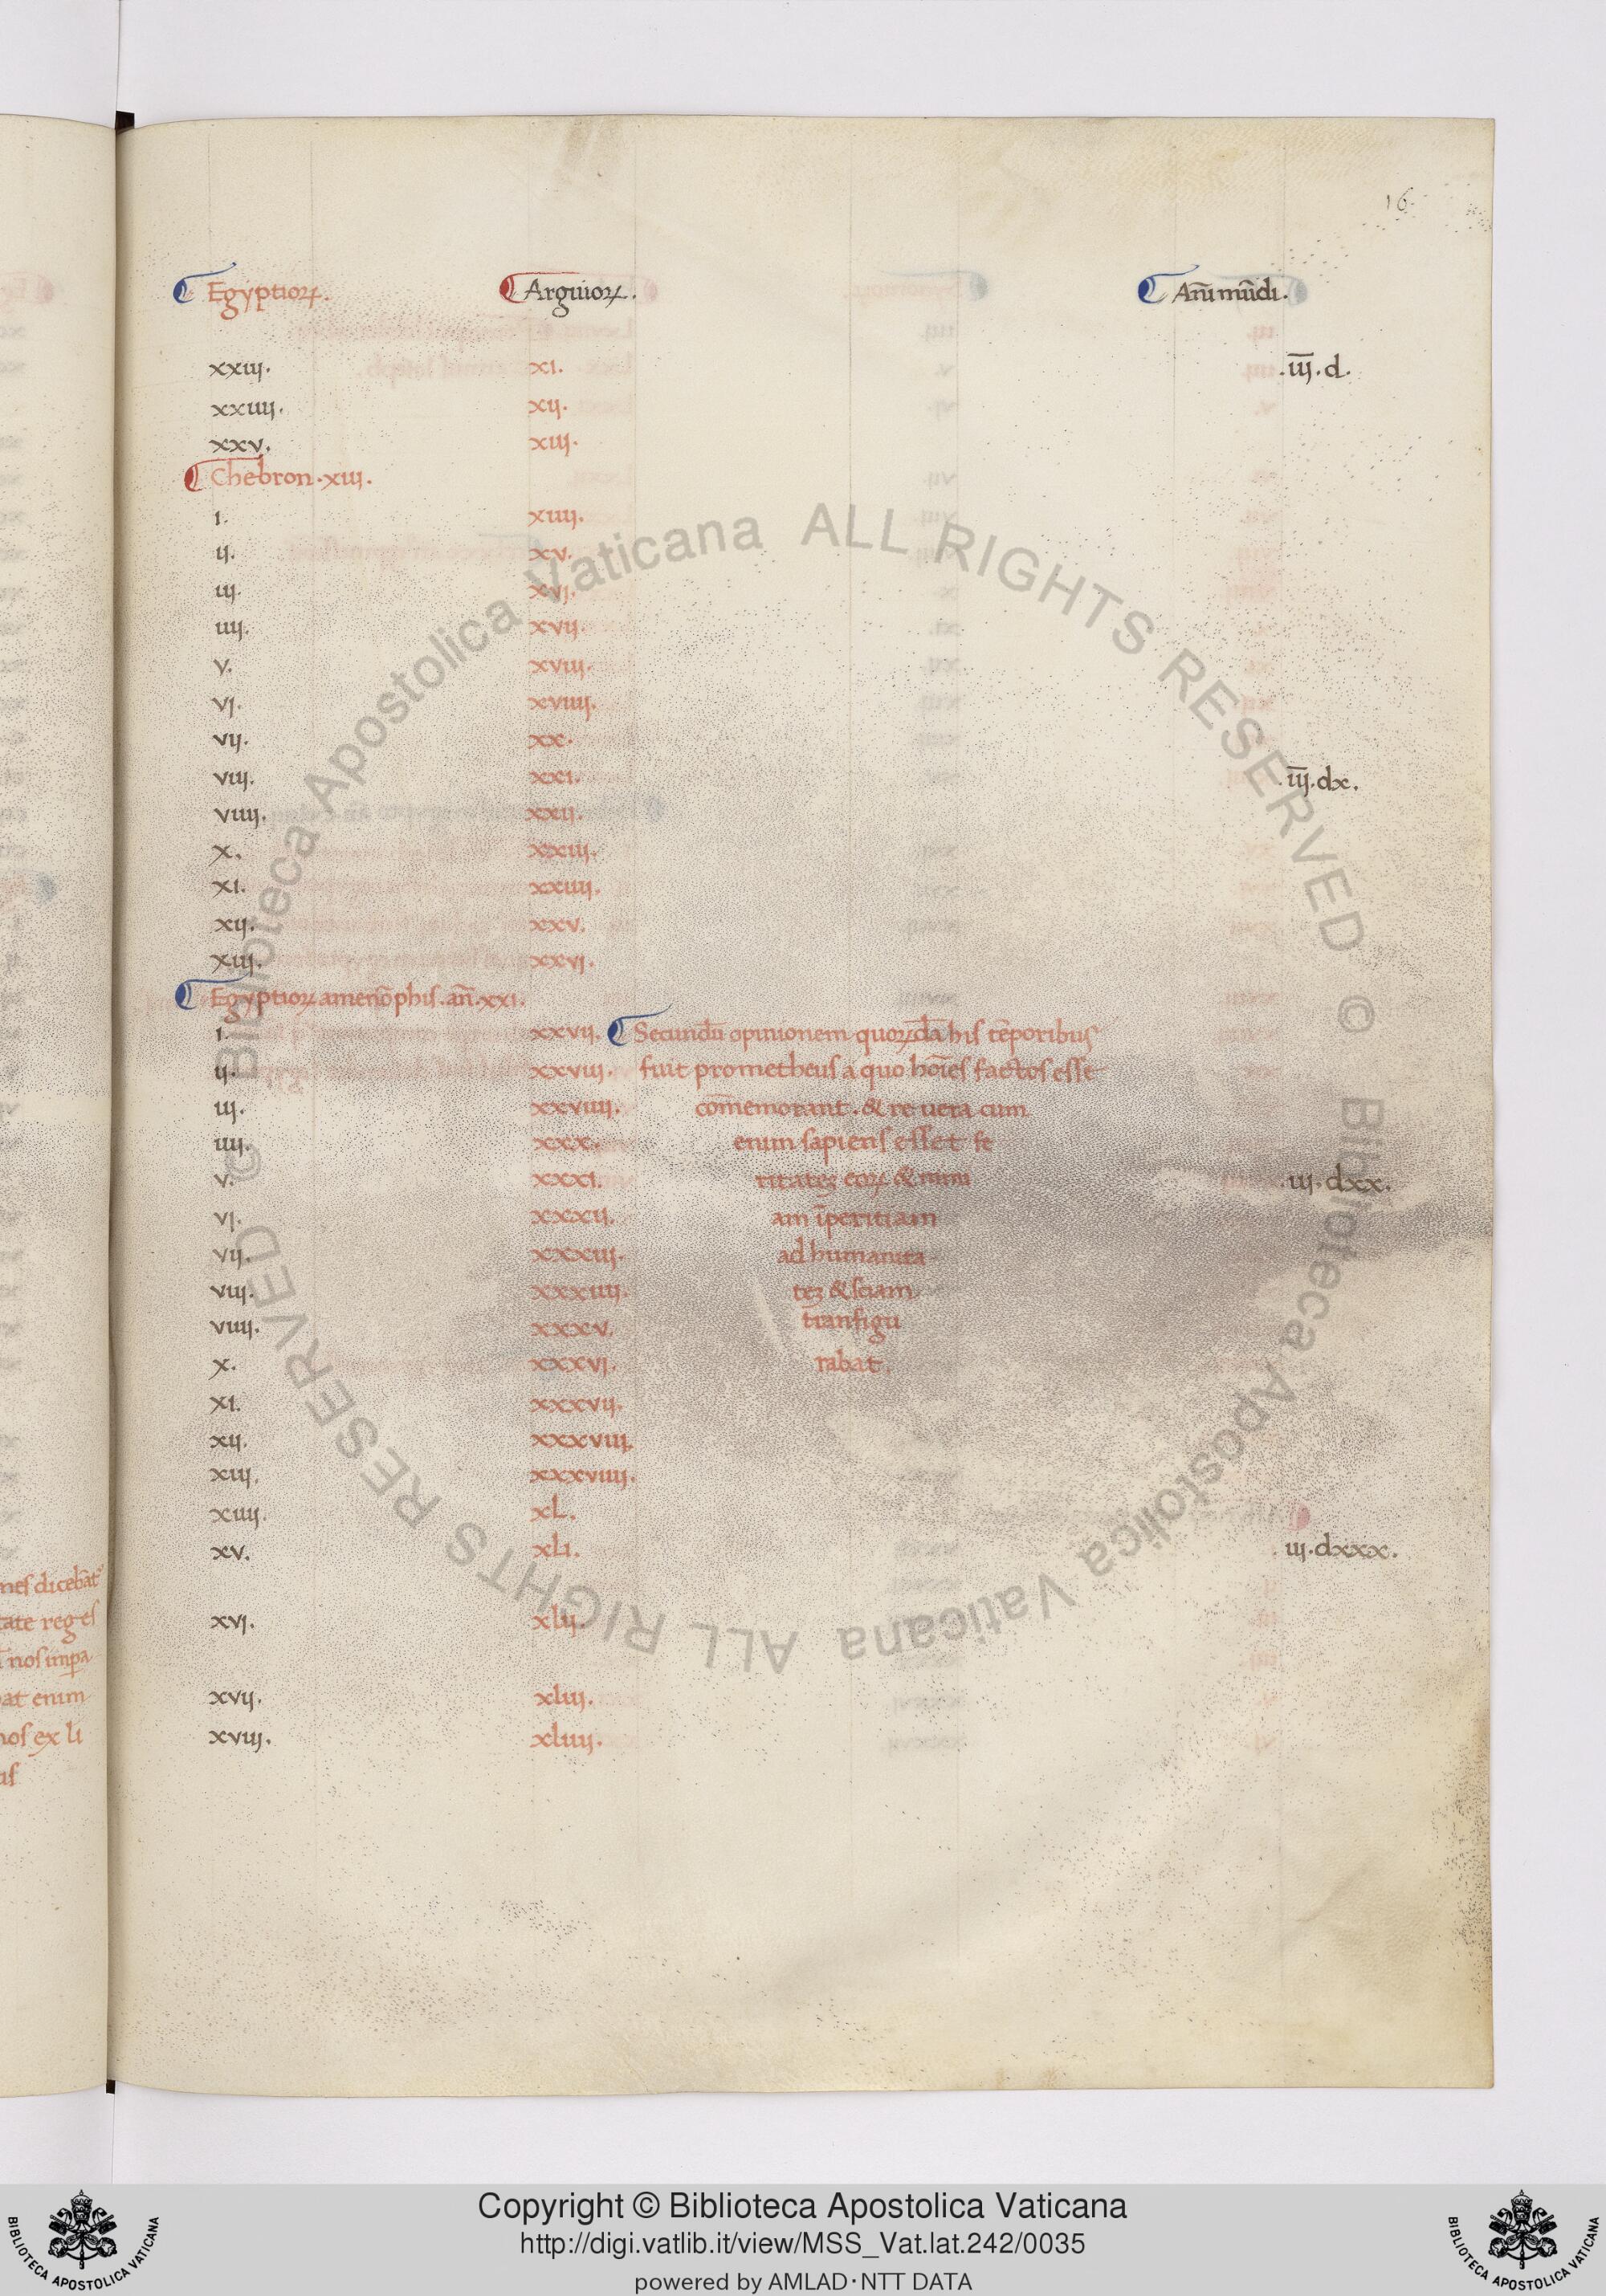 16.
Egyptioꝝ. Arguioꝝ. An̄i mūdi.
xxiij. xi. .iij̅.d.
xxiiij. xij.
xxv. xiij.
Chebron.xiij.
i. xiiij.
ij. xv.
iij. xvj.
iiij. xvij.
v. xviij.
vj. xviiij.
vij. xx.
viij. xxi. .iij̅.dx.
viiij. xxij.
x. xxiij.
xi. xxiiij.
xij. xxv.
xiij. xxvj.
Egyptioꝝ amenōphis.an̄.xxi.
i. xxvij. Secundū opinionem quoꝝdā his tēporibus
ij. xxviij. fuit prometheus a quo hoīes factos esse
iij. xxviiij. com̄emorant. & re uera cum
iiij. xxx. enim sapiens esset fe
v. xxxi. ritateꝫ eoꝝ & nimi .iij.dxx.
vj. xxxij. am īperitiam
vij. xxxiij. ad humanita
viij. xxxiiij. teꝫ & sciam
viiij. xxxv. tranfigu
x. xxxvj. rabat.
xi. xxxvij.
xij. xxxviij.
xiij. xxxviiij.
xiiij. xL.
xv. xLi. .iij.dxxx.
xvj. xlij.
xvij. xliij.
xviij. xliiij.
nes dicebāt
tate reges
nos imꝑa
bat enim
nos ex li
is
Copyright © Biblioteca Apostolica Vaticana
http://digi.vatlib.it/view/MSS_Vat.lat.242/0035
powered by AMLAD·NTT DATA
BIBLIOTECA APOSTOLICA VATICANA
BIBLIOTECA APOSTOLICA VATICANA
© Biblioteca Apostolica Vaticana ALL RIGHTS RESERVED
© Biblioteca Apostolica Vaticana ALL RIGHTS RESERVED